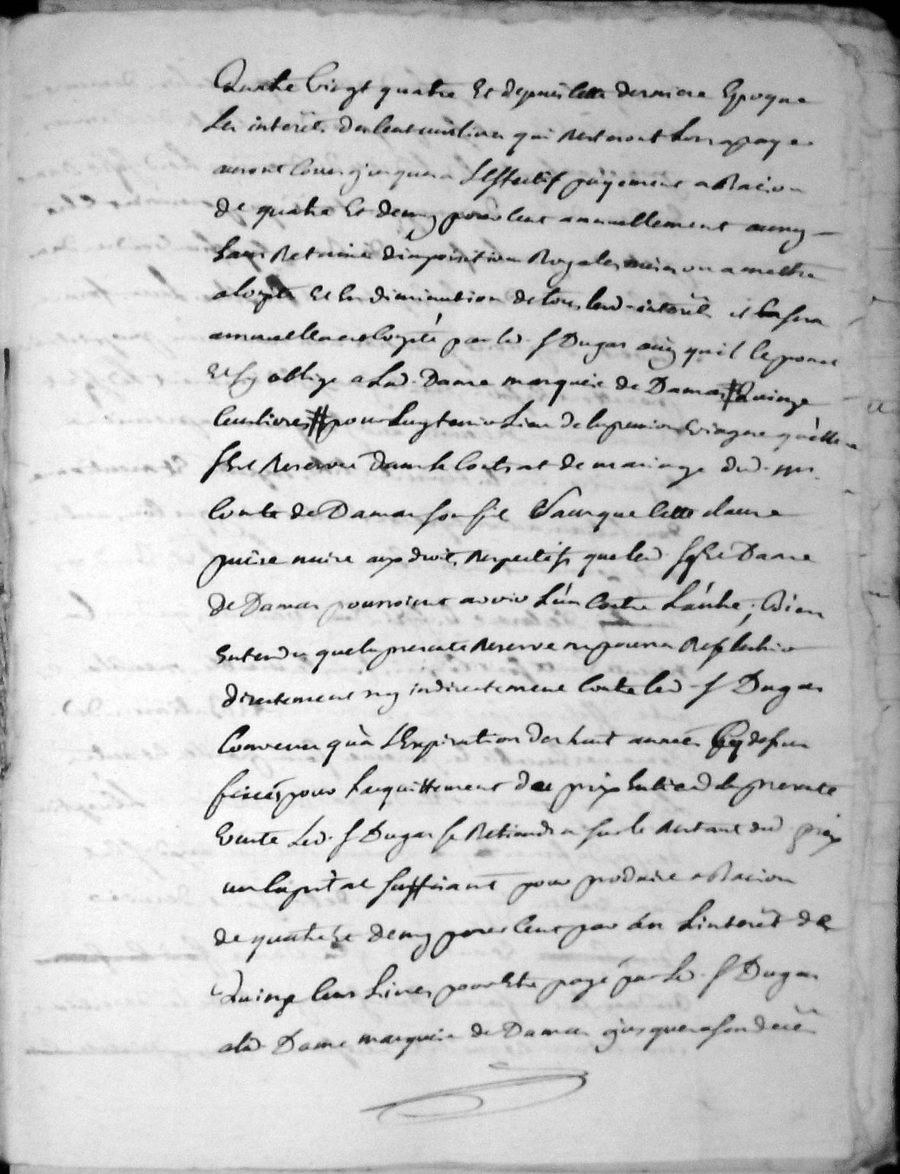 Quatre Vingt quatre Et depuis cette derniere Epoque
Les interêts des cent mil livres qui resteront Lors a payer
auront Cours jusques a L'Effectif payement a Raison
de quatre Et demy pour Cent annuellement aussy
Sans Retenue d'imposition Royales
a Compte Et En diminution de tous lesd. interêts il Sera
annuellement Compté par led. Sr Dugas ainsy qu'il le promet
Et s'y oblige a Lad. Dame marquise de Damas # Quinze
Cent livres # pour Luy tenir Lieu de la pension Viagere qu'elle
s'Est Reservée dans le Contrat de mariage dud. mr.
Comte de Damas son fils Sans que Cette clause
puisse nuire aux droits Respectifs que led. Sr Et Dame
de Damas pourroient avoir L'un Contre L'autre, Bien
Entendu que la presente Reserve ne pourra Reflechir
directement ny indirectement Contre led. Sr Dugas
Convenu qu'a L'Expiration des huit années Cy dessus
fixées pour L'acquittement du prix Entier de la presente
Vente Led. Sr Dugas se Retiendra sur le Restant du prix
un Capital suffisant pour produire a Raison
de quatre Et demy pour Cent par an L'interêt de
Quinze Cent Livres pour Etre payé par Led. Sr Dugas
a lad. Dame marquise de Damas jusques a son decès